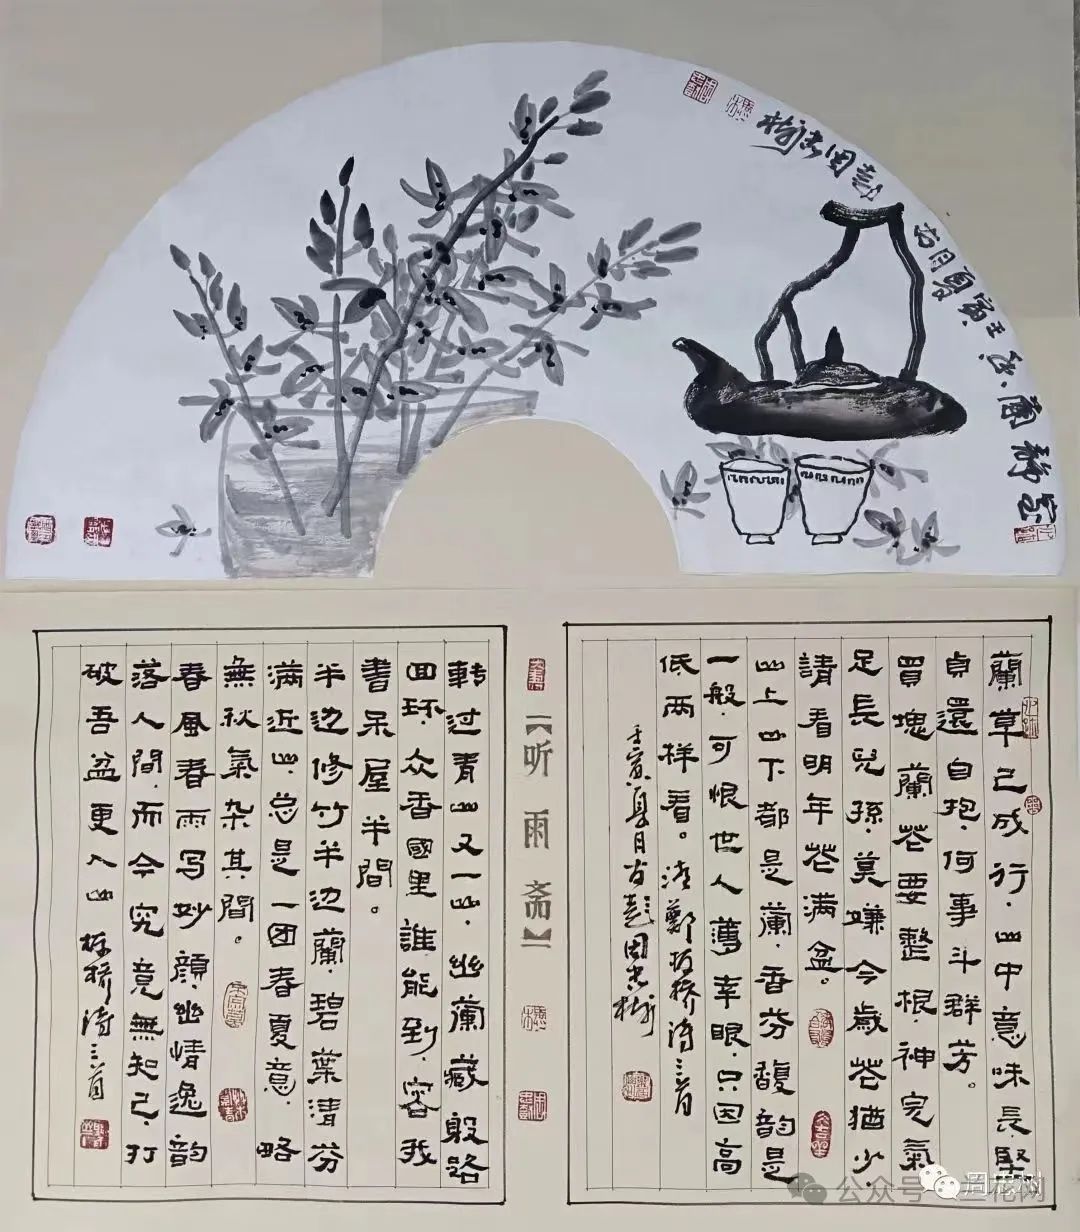 室静蘭香·壬寅夏月古
彭周志樹
蘭草已成行，山中意味長，堅
貞還自抱，何事斗群芳。
買塊蘭花要整根，神完氣
足長兒孫，莫嫌今歲花猶少，
請看明年花满盆。
山上山下都是蘭，香芬馥韵是
一般，可恨世人薄幸眼，只因高
低两样看。清鄭板桥诗三首
壬寅夏月古彭周志樹
【听雨斋】
转过青山又一山，幽蘭藏躲路
回环，众香國里誰能到，容我
書呆屋半間。
半边修竹半边蘭，碧葉清芬
满近山，总是一团春夏意，略
無秋氣杂其間。
春風春雨写妙顔，幽情逸韵
落人間，而今究竟無知己，打
破吾盆更入山 板桥诗三首
公众号